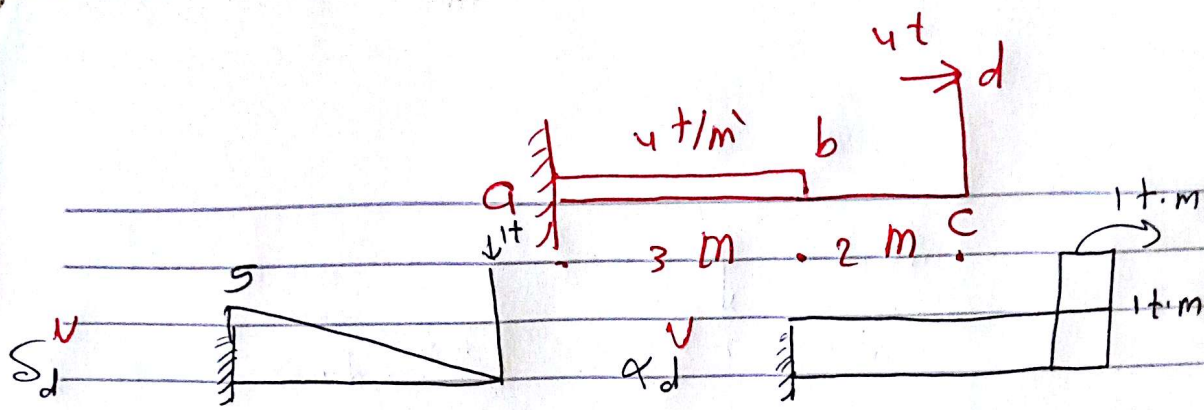 4 t
d
4 t/m`
b
a
1t
C
1 t.m
3 m . 2 m .
5
1t.m
δ d v
α d v